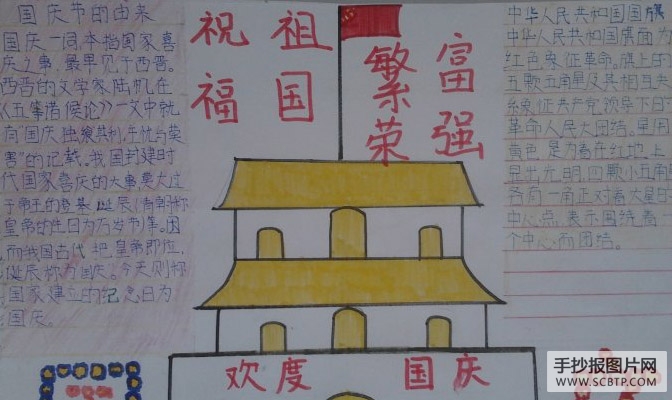 国庆节的由来
国庆一词,本指国家喜
庆之事,最早见于西晋。
西晋的文学家陆机在
《五等诸侯论》一文中就
有"国庆独飨其利,主忧
害"的记载、我国封建时
代国家喜庆的大事莫大过
于帝王的登基、诞辰(清朝称
皇帝的生日为万岁节)等。因
而我国古代把皇帝即位、
诞辰称为国庆。今天则称
国家建立的纪念日为
国庆。
祝祖
福国
繁富
荣强
欢度 国庆
中华人民共和国国旗
中华人民共和国旗面为
红色象征革命。旗上的
五颗五角星及其相互
象征共产党领导下
革命人民大团结。星用
黄色是为着在红地上
早出光明,四颗小五角星
各有一角正对着大星
中心点,表示围绕着
个中心而团结。
手抄报图片网
www.SCBTP.com